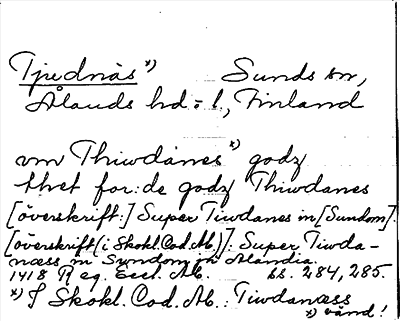 Tjudnäs x) Sunds sn,
Ålands hd = l., Finland
vm Thiwdanes x) godz
thet for:de godz Thiwdanes
[överskrift:] Super Tiwdanes in [Sundom].
[överskrift (i Skokl. Cod. Ab.)]: Super Tiwda-
næss in Sundom in Alandia.
1418 Reg. Eccl. Ab. ss. 284, 285.
x) I Skokl. Cod. Ab.: Tiwdanæss
x) vänd!